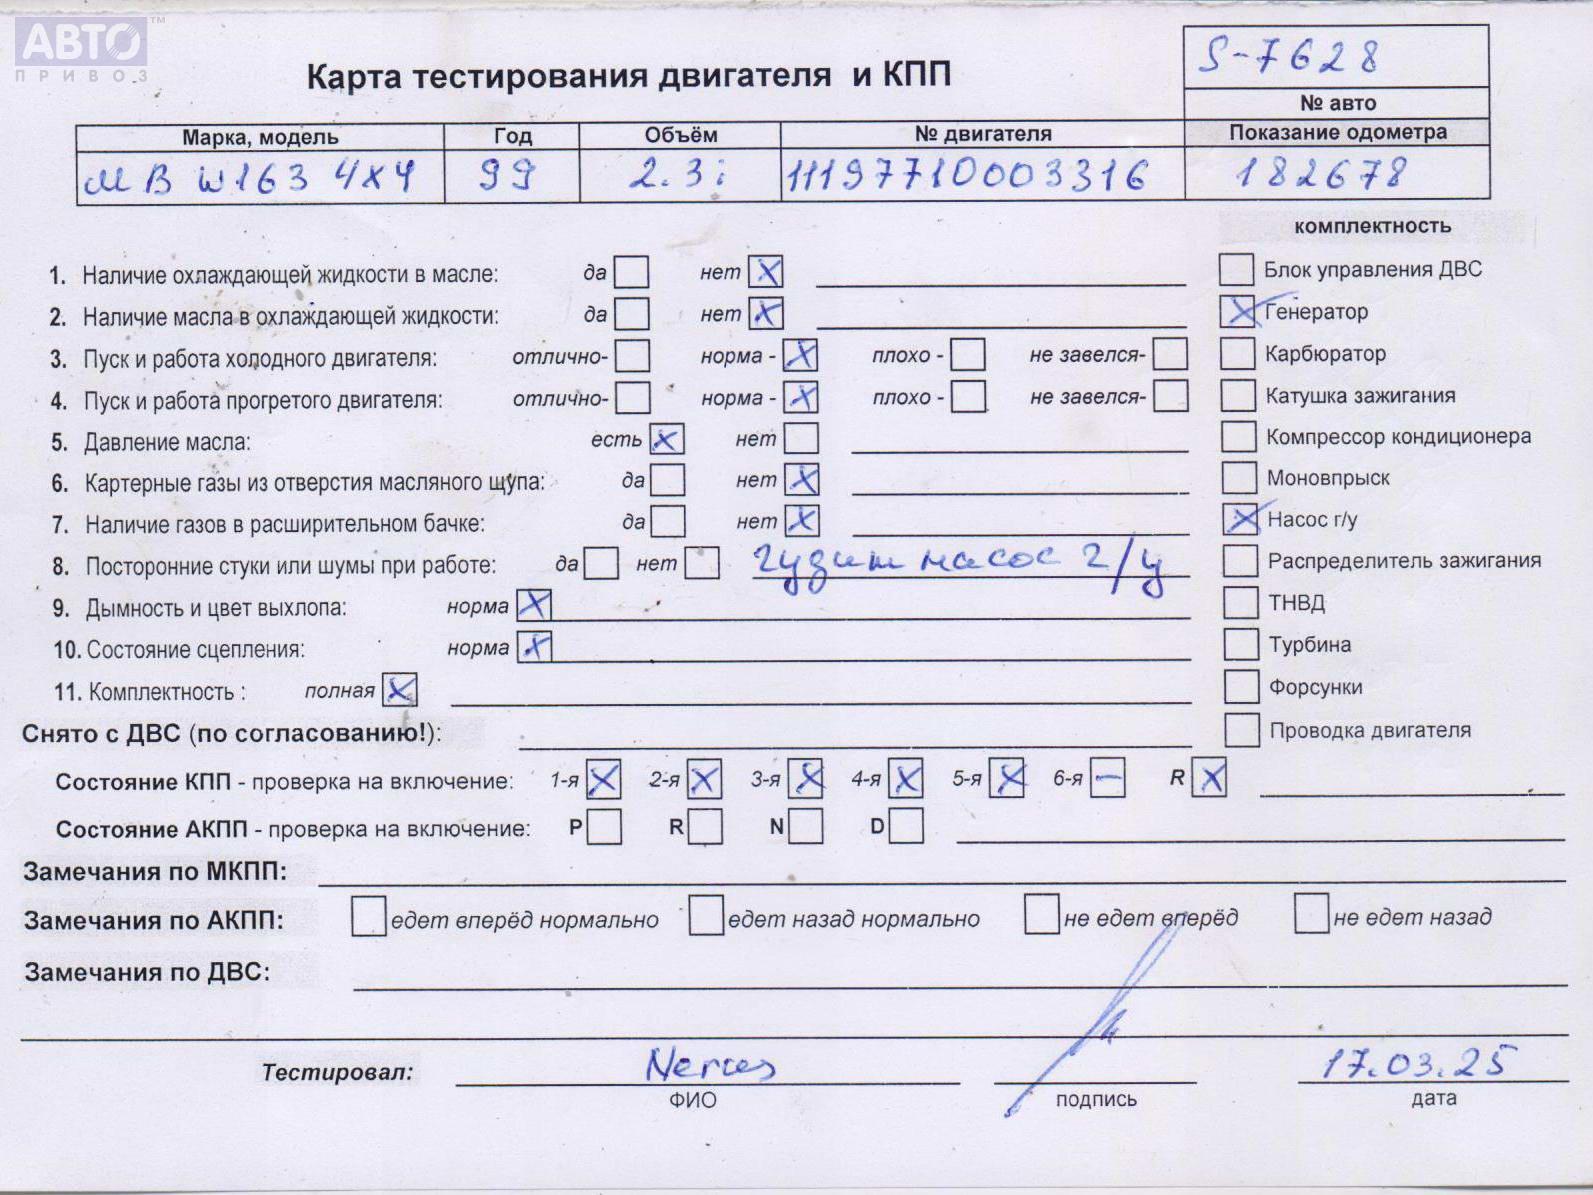 АВТО™
ПРИВОЗ
Карта тестирования двигателя и КПП
S-7628
№ авто
Марка, модель Год Объём № двигателя Показание одометра
МВ W163 4x4 99 2.3i 11197710003316 182678
комплектность
1. Наличие охлаждающей жидкости в масле: да нет X
Блок управления ДВС
2. Наличие масла в охлаждающей жидкости: да нет X
X Генератор
3. Пуск и работа холодного двигателя: отлично- норма - X плохо - не завелся-
Карбюратор
4. Пуск и работа прогретого двигателя: отлично- норма - X плохо - не завелся-
Катушка зажигания
5. Давление масла: есть X нет
Компрессор кондиционера
6. Картерные газы из отверстия масляного щупа: да нет X
Моновпрыск
7. Наличие газов в расширительном бачке: да нет X
X Насос г/у
8. Посторонние стуки или шумы при работе: да нет гудит насос г/у
Распределитель зажигания
9. Дымность и цвет выхлопа: норма X
ТНВД
10. Состояние сцепления: норма X
Турбина
11. Комплектность : полная X
Форсунки
Снято с ДВС (по согласованию!):
Проводка двигателя
Состояние КПП - проверка на включение: 1-я X 2-я X 3-я X 4-я X 5-я X 6-я — R X
Состояние АКПП - проверка на включение: P R N D
Замечания по МКПП:
Замечания по АКПП: едет вперёд нормально едет назад нормально не едет вперёд не едет назад
Замечания по ДВС:
Тестировал: 17.03.25
ФИО подпись дата